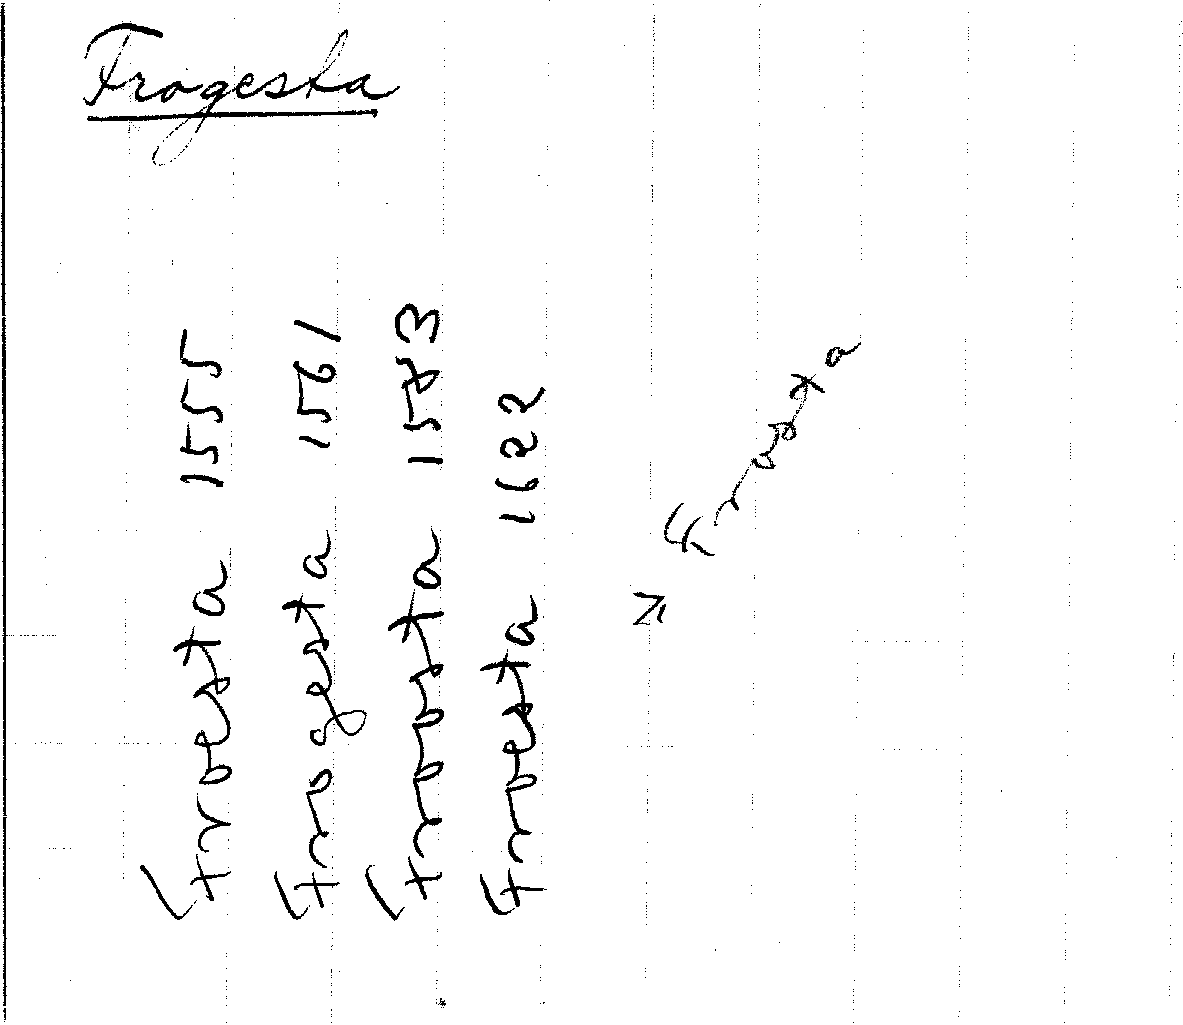 Frogesta
Froesta 1555
Frogesta 1561
Froosta 1583
Froesta 1622
= Froasta